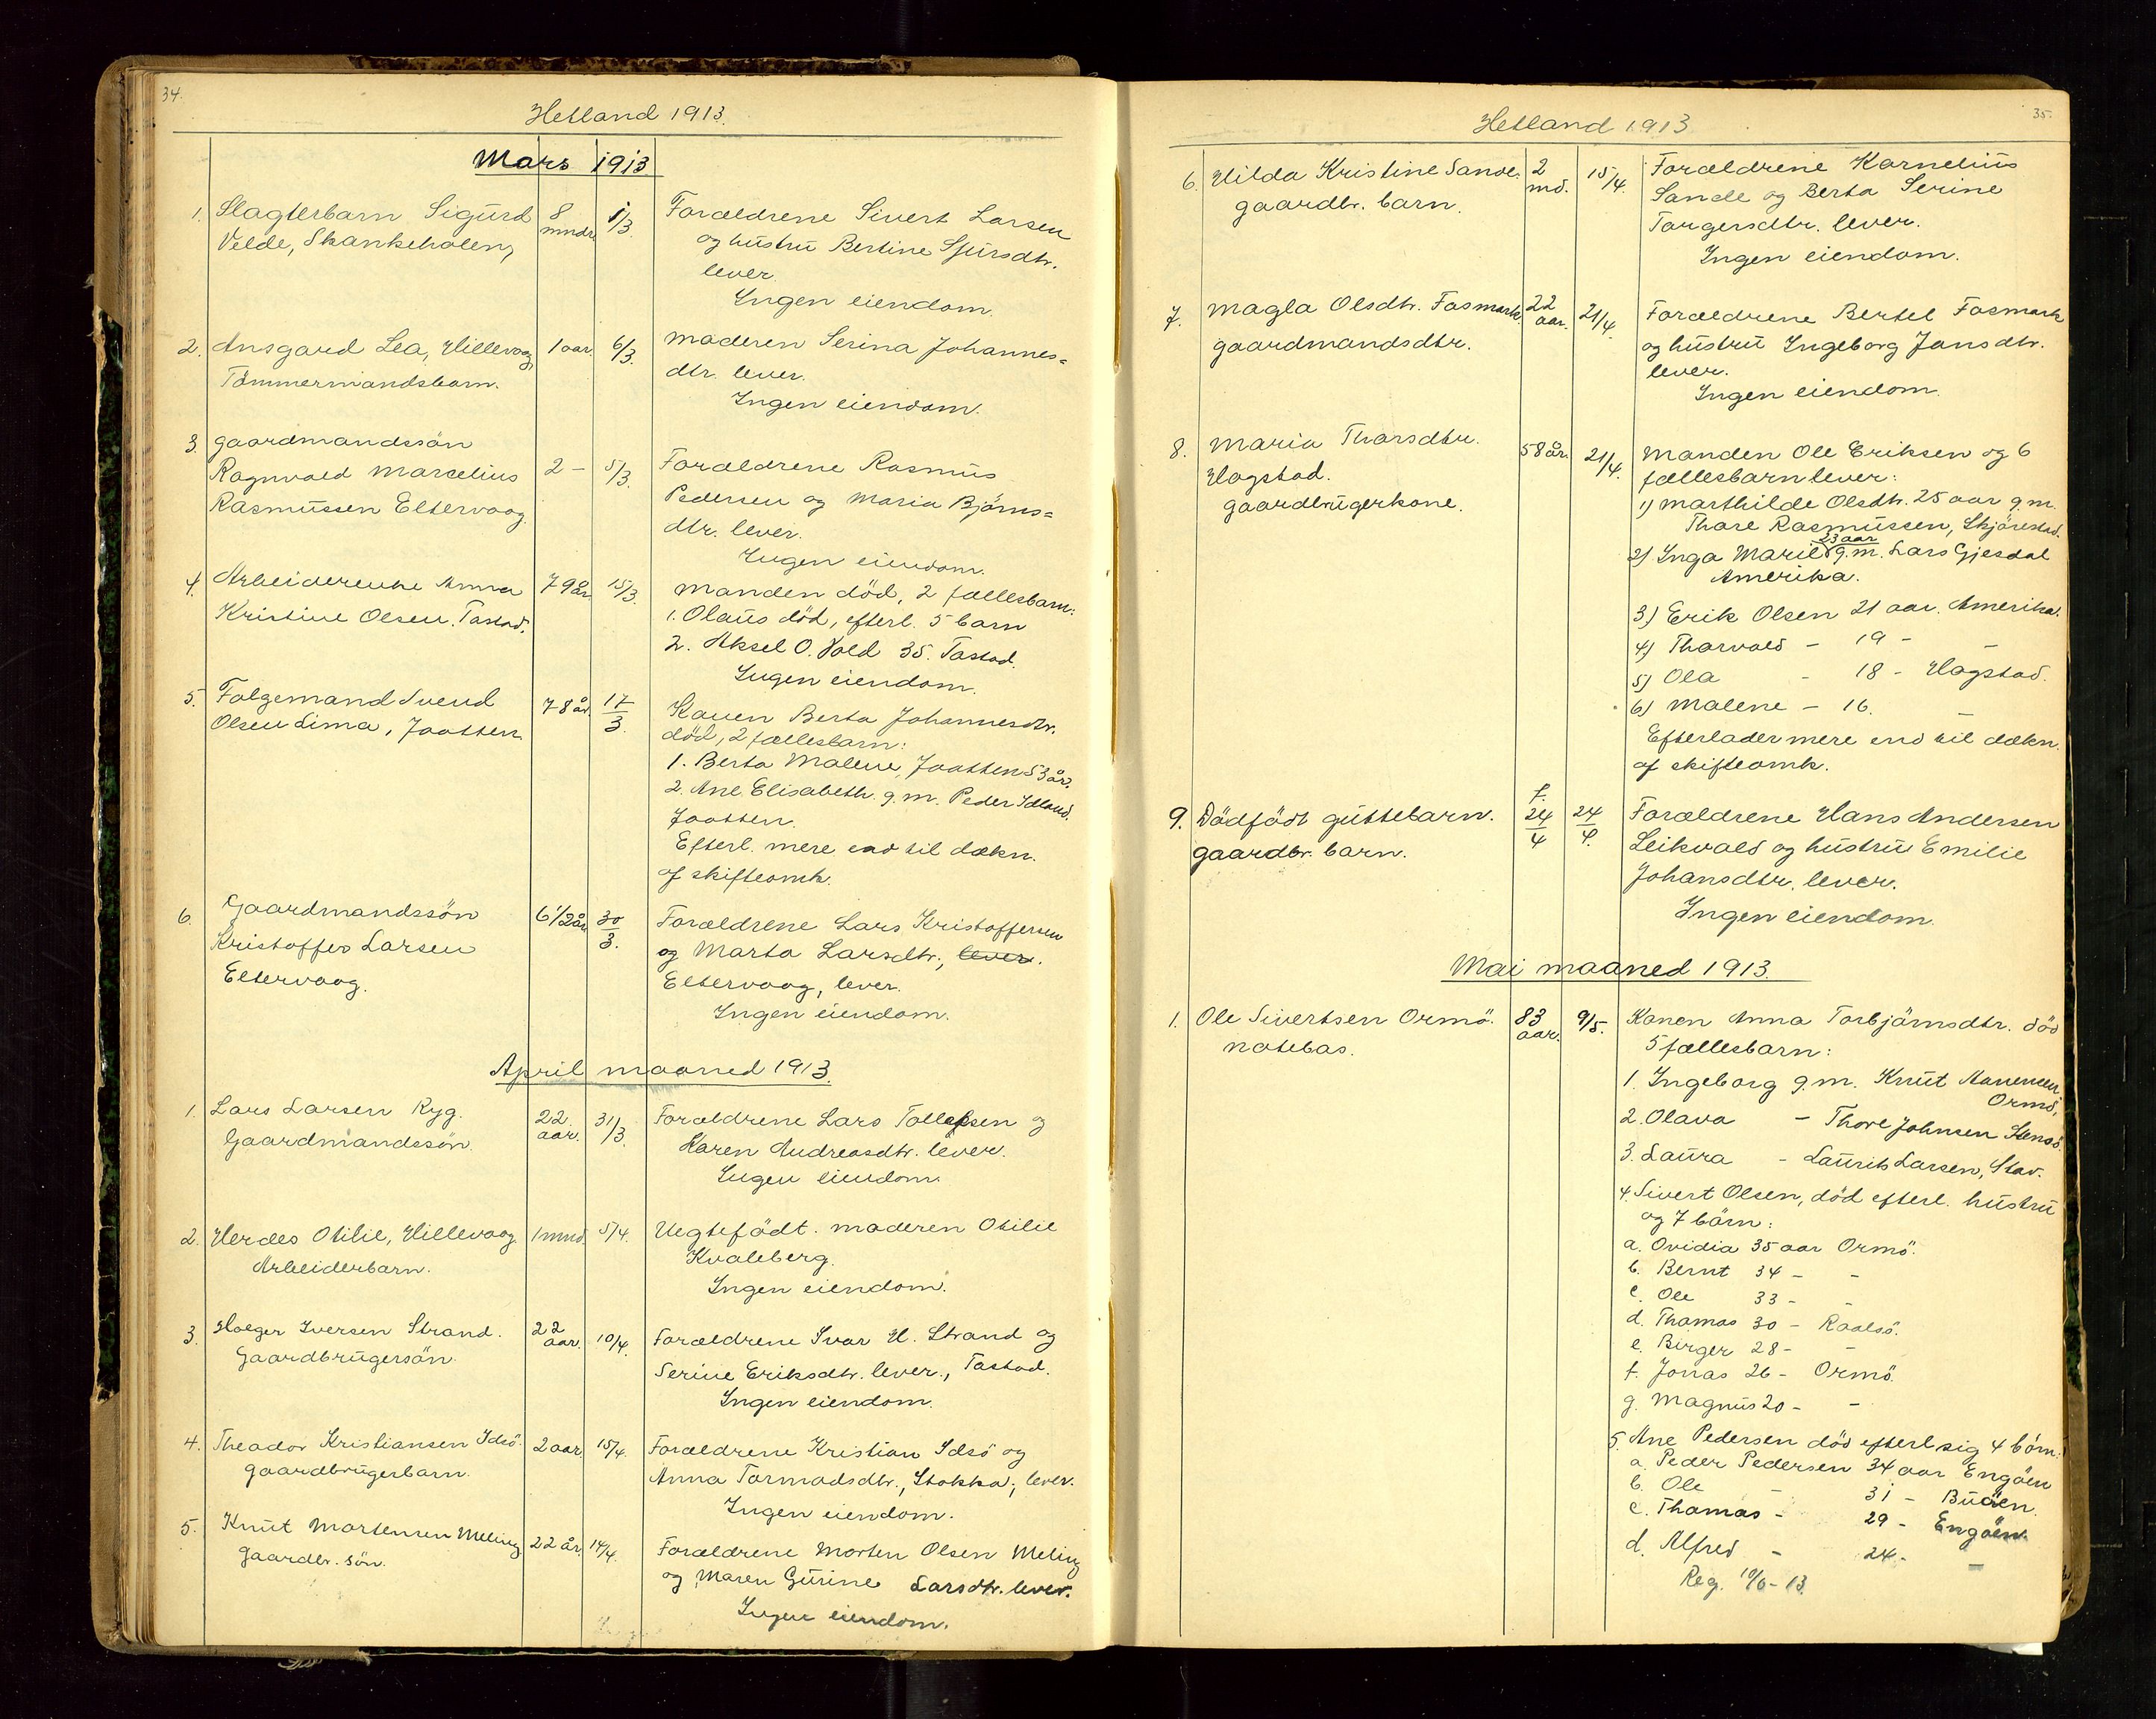 34.
Hetland 1913.
Mars 1913
1. Slagterbarn Sigurd 8 mndr. 1/3. Forældrene Sivert Larsen
Velde, Skankeholen, og hustru Bertine Sjursdtr.
lever.
Ingen eiendom.
2. Ansgard Lea, Hillevaag, 1 aar. 6/3. moderen Serina Johannes=
Tømmermandsbarn. dtr. lever.
Ingen eiendom.
3. gaardmandssön
Ragnvald Marselius 2 – 5/3. Forældrene Rasmus
Rasmussen Eltervaag. Pedersen og Maria Bjørns=
dtr. lever.
Ingen eiendom.
4. Arbeiderenke Anna 79 år. 15/3. Manden död, 2 fællesbarn:
Kristine Olsen. Tastad. 1. Olaus död, efterl. 5 barn
2. Aksel O. Vold 35. Tastad.
Ingen eiendom.
5. Folgemand Svend 78 år. 17/3. Konen Berta Johannesdtr.
Olsen Lima, Jaatten død, 2 fællesbarn:
1. Berta Malene, Jaatten 53 år.
2. Ane Elisabeth. g.m. Peder Idland.
Jaatten.
Efterl. mere end til dækn.
af skifteomk.
6. Gaardmandssön 6 1/2 år 30/3. Forældrene Lars Kristoffersen
Kristoffer Larsen og Marta Larsdtr., lever.
Eltervaag. Eltervaag, lever.
Ingen eiendom.
April maaned 1913.
1. Lars Larsen Ryg. 22 aar. 31/3. Forældrene Lars Tollefsen og
Gaardmandssön. Karen Andreasdtr. lever.
Ingen eiendom.
2. Herdes Otilie, Hillevaag. 1 mnd. 5/4. Uegtefödt. moderen Otilie
Arbeiderbarn. Kvaleberg.
Ingen eiendom.
3. Holger Iversen Strand. 22 aar. 10/4. Forældrene Ivar H. Strand og
Gaardbrugersön. Serine Eriksdtr. lever., Tastad.
Ingen eiendom.
4. Theodor Kristiansen Idsö. 2 aar. 15/4. Forældrene Kristian Idsö og
gaardbrugerbarn. Anna Tormodsdtr., Stokka, lever.
Ingen eiendom.
5. Knut Mortensen Meling 22 år. 14/4. Forældrene Morten Olsen Meling
gaardbr. sön. og Maren Gurine Larsdtr. lever.
Ingen eiendom.
35.
Hetland 1913
6. Hilda Kristine Sande. 2 md. 15/4. Forældrene Kornelius
gaardbr. barn. Sande og Berta Serine
Torgersdtr. lever.
Ingen eiendom.
7. Magla Olsdtr. Fosmark. 22 aar. 21/4. Forældrene Bertel Fosmark
gaardmandsdtr. og hustru Ingeborg Jonsdtr.
lever.
Ingen eiendom.
8. Maria Thorsdtr. 58 år. 21/4. Manden Ole Eriksen og 6
Hogstad. fællesbarn lever:
gaardbrugerkone. 1) Marthilde Olsdtr. 25 aar g.m.
Thore Rasmussen, Skjörestad.
2) Inga Marie 23 aar g.m. Lars Gjesdal
Amerika.
3) Erik Olsen 21 aar. Amerika.
4) Thorvald – 19 – –
5) Ola – 18 – Hogstad.
6) Malene – 16. –
Efterlader mere end til dækn.
af skifteomk.
9. Dödfödt guttebarn. f. 24/4 24/4. Forældrene Hans Andersen
gaardbr. barn. Leikvold og hustru Emilie
Johansdtr. lever.
Ingen eiendom.
Mai maaned 1913.
1. Ole Sivertsen Ormö. 83 aar. 9/5. Konen Anna Torbjörnsdtr. död
notebas. 5 fællesbarn:
1. Ingeborg g.m. Knut
Ormö,
2. Olava – Thore Johnsen
3. Laura – Laurits Larsen, Stav.
4. Sivert Olsen, död efterl. hustru
og 7 börn:
a. Ovidia 35 aar Ormö.
b. Bernt 34 – –
c. Ole 33 – –
d. Thomas 30 – Roalsö.
e. Birger 28 – –
f. Jonas 26 – Ormö.
g. Magnus 20 – –
5. Ane Pedersen död efterl sig 4 börn:
a. Peder Pedersen 34 aar Engöen
b. Ole – 31 – Buöen.
c. Thomas – 29 – Engöen.
d. Alfred – 24 – –
Reg. 10/6 – 13.